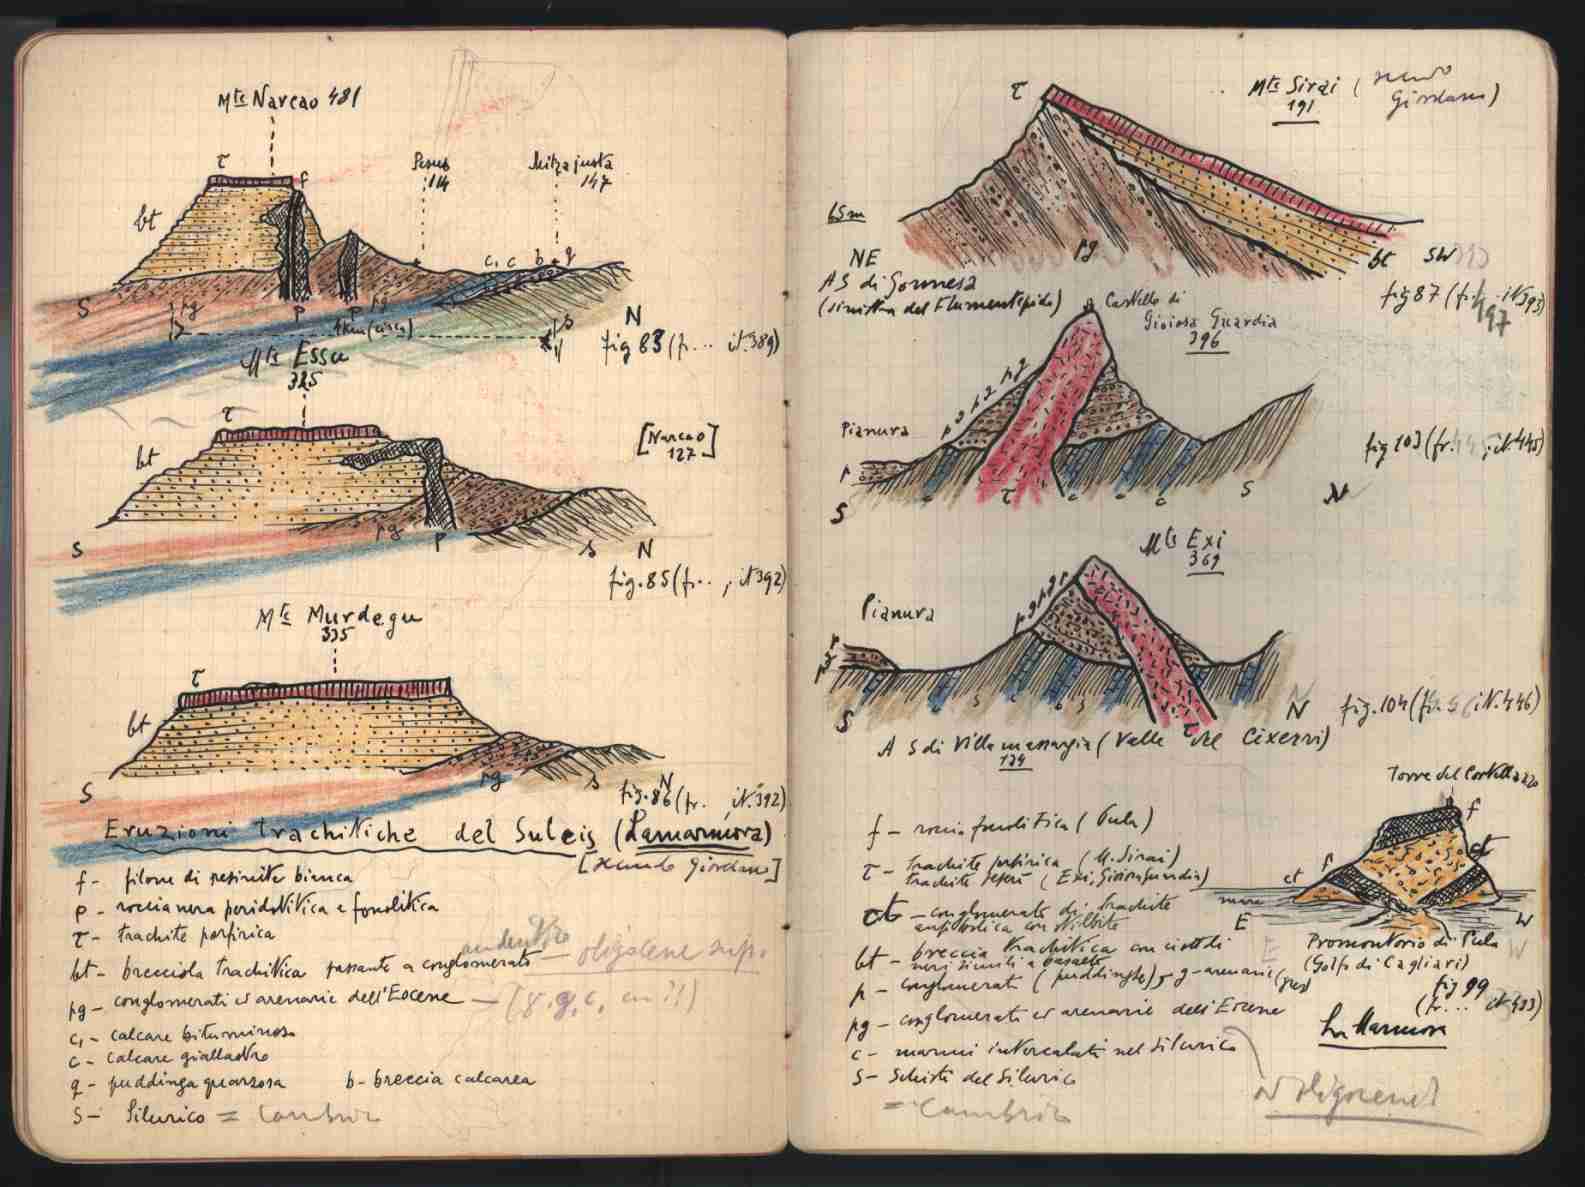 Mte Narcao 481
τ
f
Pesus
114
Mitza justa
147
bt
c, c b q
S
pg
P
P
pg
S
N
4 km (circa)
fig 83 (fr... it 389)
Mte Essu
325
τ
bt
[Narcao]
127
pg
P
S
s
N
fig. 85 (fr.., it 392)
Mte Murdegu
335
τ
bt
S
pg
s
N
fig. 86 (fr. it. 392)
Eruzioni trachitiche del Sulcis (Lamarmora)
[secondo Giordano]
f - filone di resinite bianca
p - roccia nera peridotitica e fonolitica
τ - trachite porfirica
bt - brecciola trachitica passante a conglomerato
andesitico - oligocene sup.
pg - conglomerati et arenarie dell'Eocene
c, - calcare bituminoso
c - calcare giallastro
q - puddinga quarzosa b - breccia calcarea
S - Silurico = Cambrico
τ
Mte Sirai (secondo
191 Giordano)
65m
NE
pg
bt
SW
A S di Gonnesa
(sinistra del Flumentepido)
fig 87 (it 393)
397
Castello di
Gioiosa Guardia
396
Pianura
p g p g p g
p
S
c
τ
c
c
c
S
N
fig 103 (fr. 445, it. 445)
Mte Exi
369
Pianura
p g p g p
p
g
S
s
c
b
s
τ
N
fig. 104 (fr. it. 446)
A S di Villamassargia (Valle del Cixerri)
129
Torre del Cortellazzo
f
ct
f
ct
mare
E
W
Promontorio di Pula
(Golfo di Cagliari)
fig 99
(fr... it 433)
La Marmora
f - roccia fonolitica (Pula)
τ - trachite porfirica (M. Sirai)
trachite (Exi, Gioiosaguardia)
ct - conglomerato di trachite
anfibolica con stilbite
bt - breccia trachitica con ciottoli
neri simili a basalte
p - conglomerati (puddinghe), g - arenarie (gres)
pg - conglomerati et arenarie dell'Eocene
c - marmi intercalati nel Silurico
S - Schisti del Silurico
= Cambrico